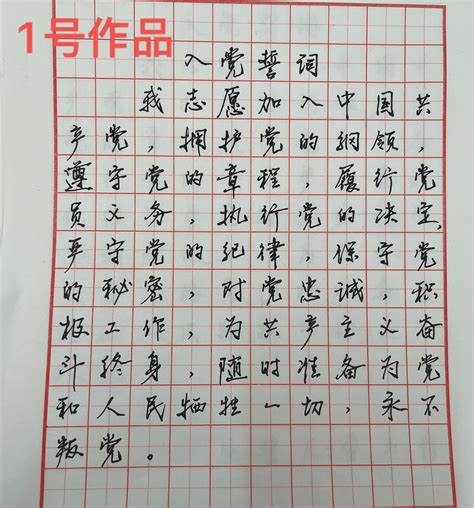 1号作品
入党誓词
我志愿加入中国共
产党，拥护党的纲领，
遵守党的章程，履行党
员义务，执行党的决定，
严守党的纪律，保守党
的秘密，对党忠诚，积
极工作，为共产主义奋
斗终身，随时准备为党
和人民牺牲一切，永不
叛党。